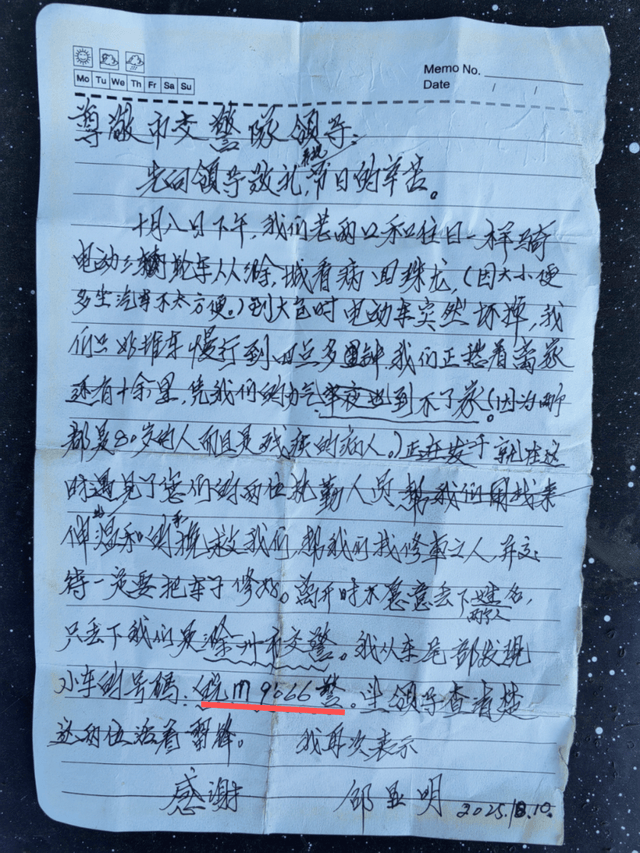 Mo Tu We Th Fr Sa Su
Memo No.
Date / /
尊敬市交警队领导:
先向领导敬礼,祝节日的辛苦。
十月八日下午,我们老两口和往日一样骑
电动三轮车从滁城看病回珠龙,(因大小便
多坐汽车不太方便。)到大包时电动车突然坏掉,我
们只好推车慢行到四点多钟,我们正愁着离家
还有十余里,凭我们的力气半夜也到不了家(因为两个
都是80岁的人而且是残疾的病人。)正在发于就在这
时遇见了您们的两位执勤人员
伸出温和的手挽救我们,帮我们找修车工人,并交
待一定要把车子修好。离开时不愿意丢下姓名,
两个人
只丢下我们是滁州市交警。我从车尾部发现
小车的号码,皖M9666警。望领导查清楚
这两位活着雷锋。 我再次表示
感谢 邵显明 2025.10.10.